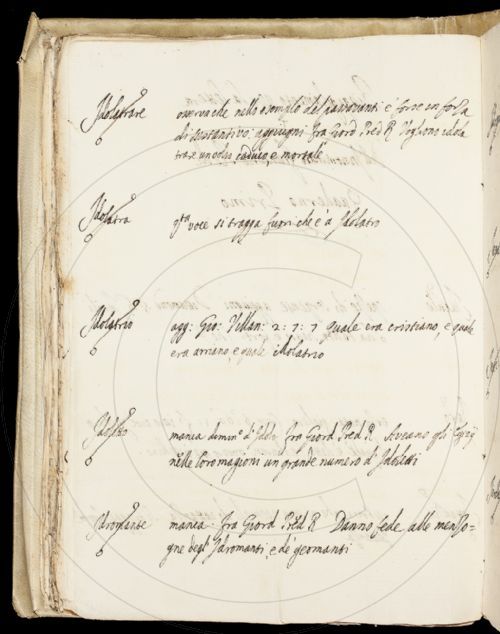 Idolatrare osserva che nello esempio del passavanti è forse in forza
di sustantivo. aggiugni fra Giord Pred R Vogliono idola
trare un caduco, e mortale
Idolatra qta voce si tragga fuori che è a Idolatro
Idolatrio agg: Gio: Villan: 2: 7: 7 quale era cristiano, e quale
era arriano, e quale idolatrio
Idoletto manca dimino d'Idolo. fra Giord Pred R. Aveano gli
nelle loro magioni un grande numero d'Idoletti
Idromante manca. fra Giord Pred R Danno fede alle menso-
gne degl'Idromanti, e de' geomanti